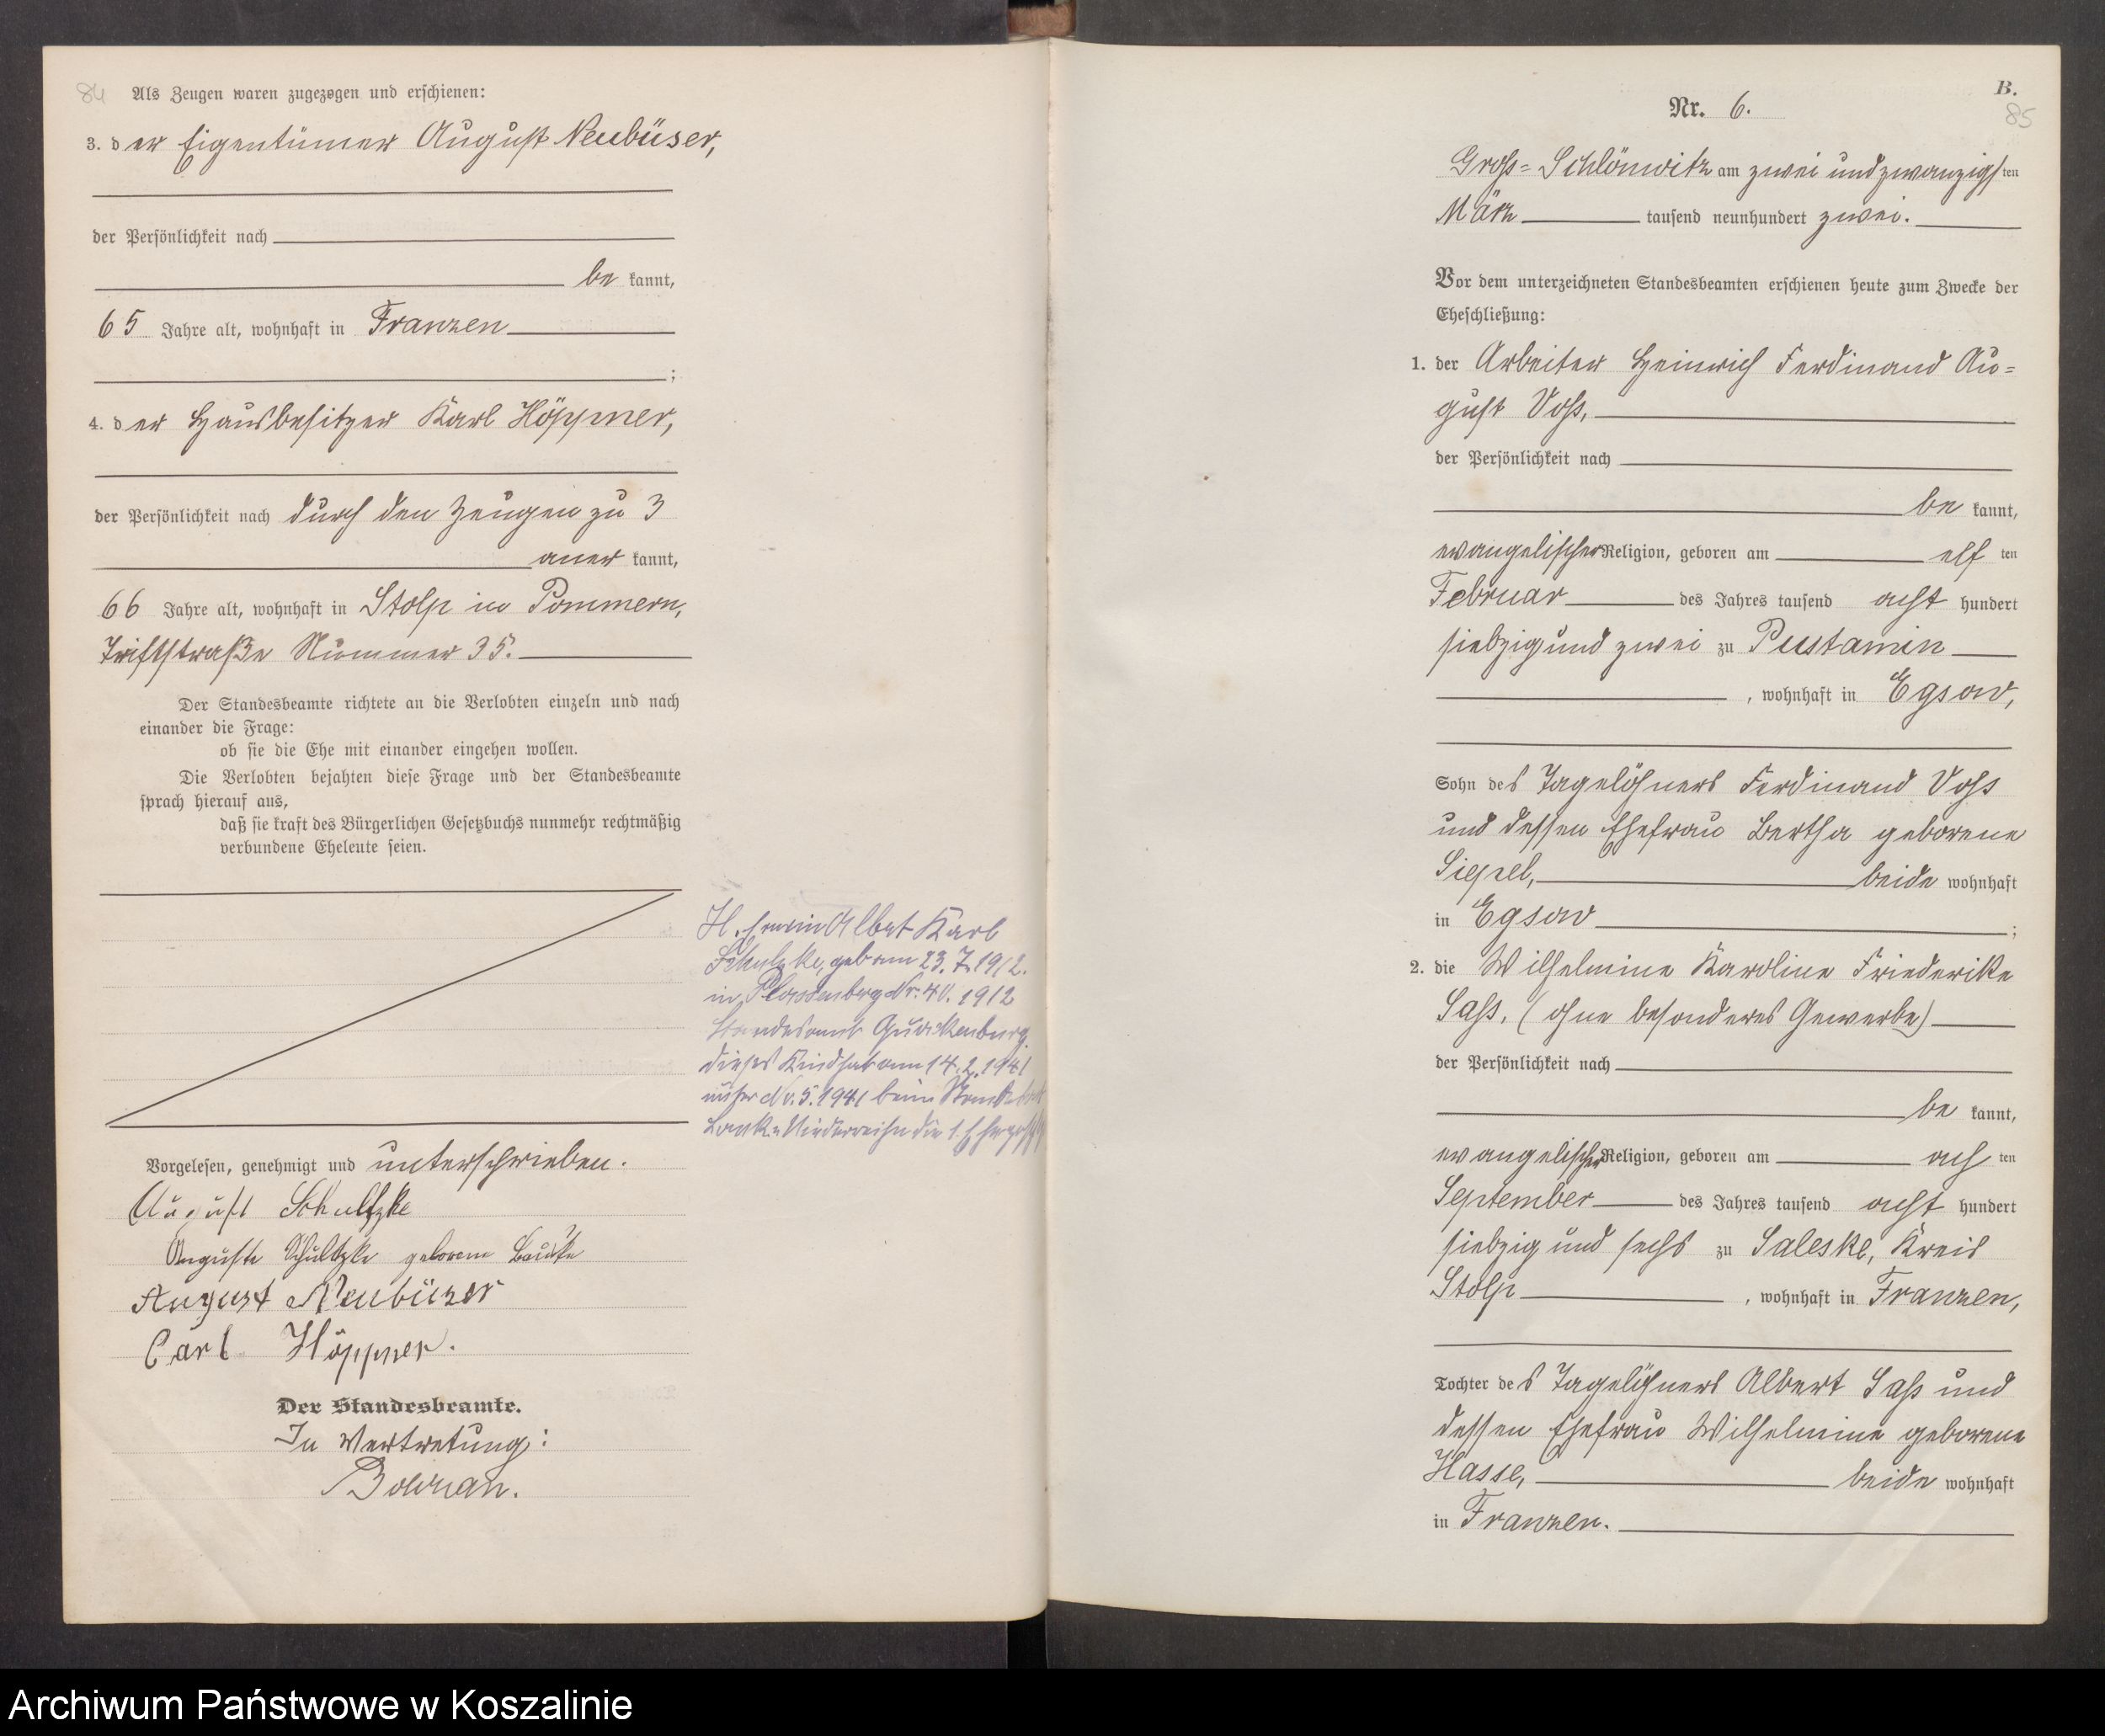 84 Als Zeugen waren zugezogen und erschienen:
3. der Eigentümer August Neubüser,
der Persönlichkeit nach
be kannt,
65 Jahre alt, wohnhaft in Franzen
;
4. der Hausbesitzer Karl Höppner,
der Persönlichkeit nach durch den Zeugen zu 3
aner kannt,
66 Jahre alt, wohnhaft in Stolp in Pommern,
Triftstraße Nummer 35.
Der Standesbeamte richtete an die Verlobten einzeln und nach
einander die Frage:
ob sie die Ehe mit einander eingehen wollen.
Die Verlobten bejahten diese Frage und der Standesbeamte
sprach hierauf aus,
daß sie kraft des Bürgerlichen Gesetzbuchs nunmehr rechtmäßig
verbundene Eheleute seien.
Erwin Albert Karl
Schulzke, geb am 23.7.1912.
in Nr. 40. 1912
Standesamt Quackenburg.
dieses Kind hat am 14.2.1941
unter Nr. 5. 1941 beim
die 1. Ehe
Vorgelesen, genehmigt und unterschrieben.
August Schultzke
Auguste Schultzke geborene
August Neubüser
Carl Höppner.
Der Standesbeamte.
In Vertretung:
B.
Nr. 6.
85
Gross-Schlönwitz am zwei und zwanzigsten
März tausend neunhundert zwei.
Vor dem unterzeichneten Standesbeamten erschienen heute zum Zwecke der
Eheschließung:
1. der Arbeiter Heinrich Ferdinand Au=
gust Voß,
der Persönlichkeit nach
be kannt,
evangelischer Religion, geboren am elf ten
Februar des Jahres tausend acht hundert
siebzig und zwei zu Pustamin
, wohnhaft in Egsow,
Sohn des Tagelöhners Ferdinand Voß
und dessen Ehefrau Bertha geborene
beide wohnhaft
in Egsow ;
2. die Wilhelmine Karoline Friederike
Saß, (ohne besonderes Gewerbe)
der Persönlichkeit nach
be kannt,
evangelischer Religion, geboren am ach ten
September des Jahres tausend acht hundert
siebzig und sechs zu Saleske, Kreis
Stolp , wohnhaft in Franzen,
Tochter des Tagelöhners Albert Saß und
dessen Ehefrau Wilhelmine geborene
Hasse, beide wohnhaft
in Franzen.
Archiwum Państwowe w Koszalinie